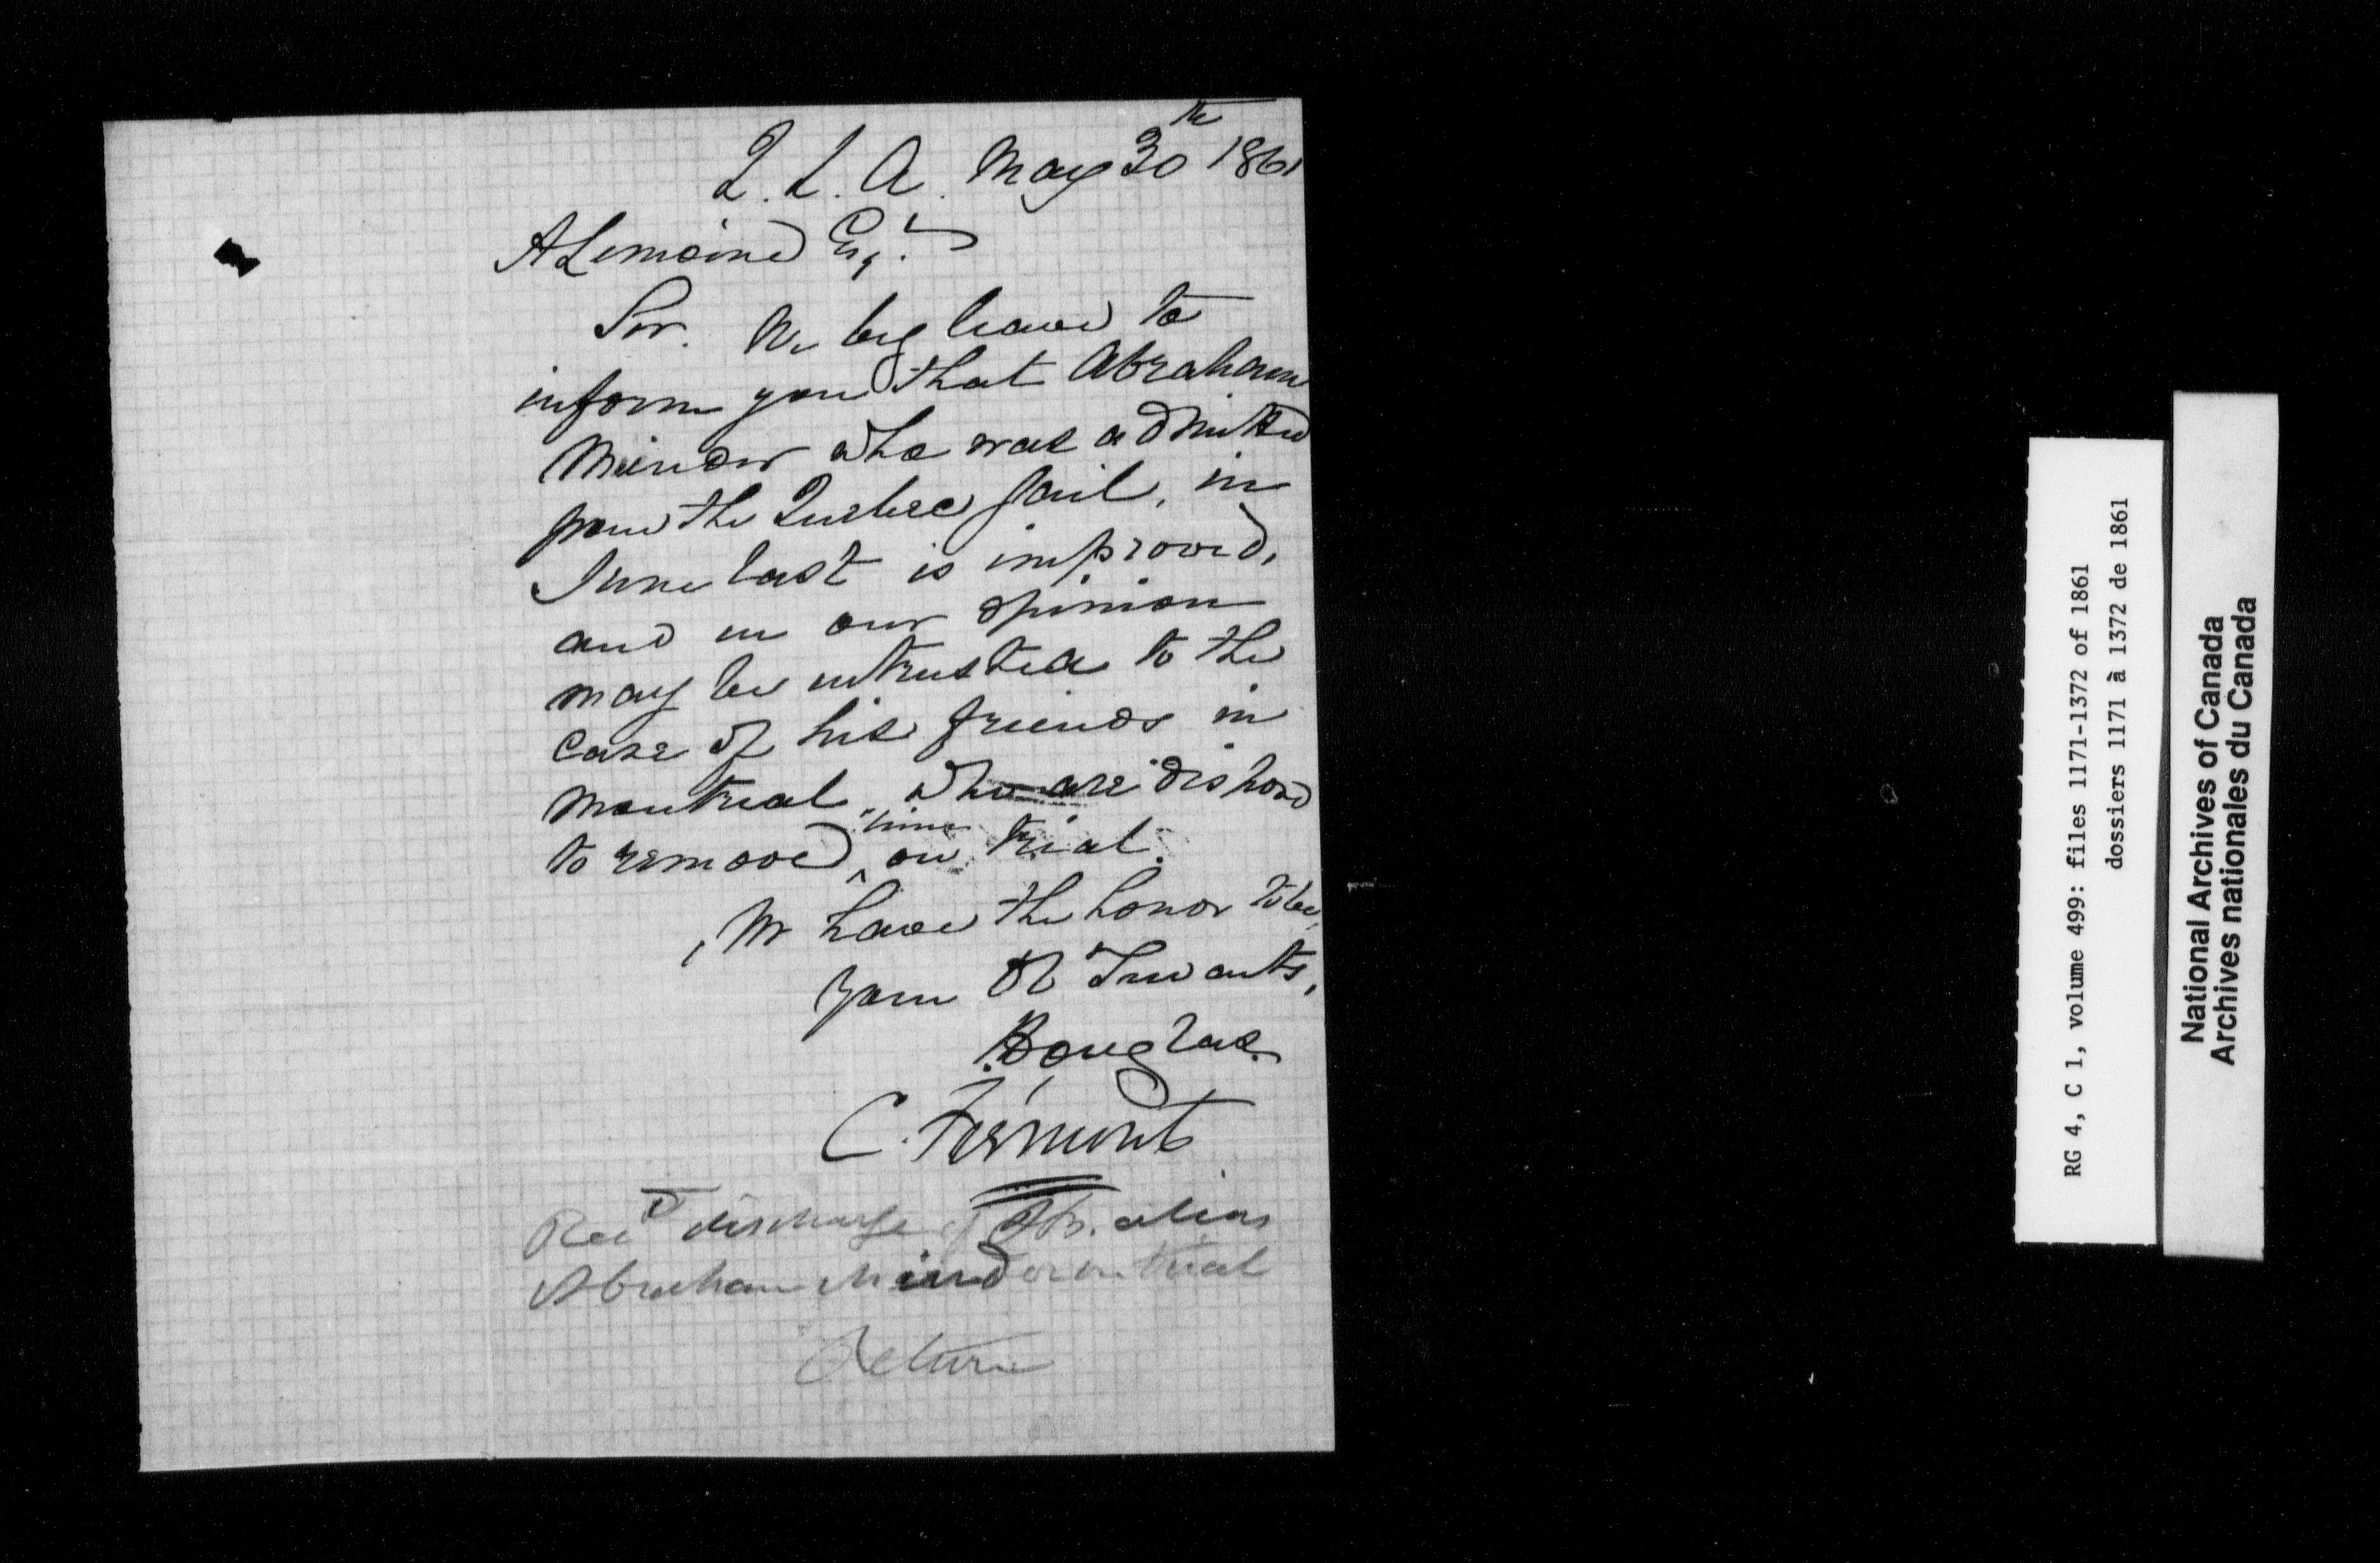 Q. L. A. May 30th 1861
A Lemoine Esqr.
Sir. We beg leave to
inform you that Abraham
Minder who was admitted
from the Quebec Jail, in
June last is improved,
and in our opinion
may be intrusted to the
care of his friends in
Montreal, who are disposed
to remove him on trial.
We have the honor to be,
Your Ob Servants,
Douglas
C. Frémont
Recd discharge of Ab. alias
Abraham Minder on trial
Return
RG 4, C 1, volume 499: files 1171-1372 of 1861
dossiers 1171 à 1372 de 1861
National Archives of Canada
Archives nationales du Canada